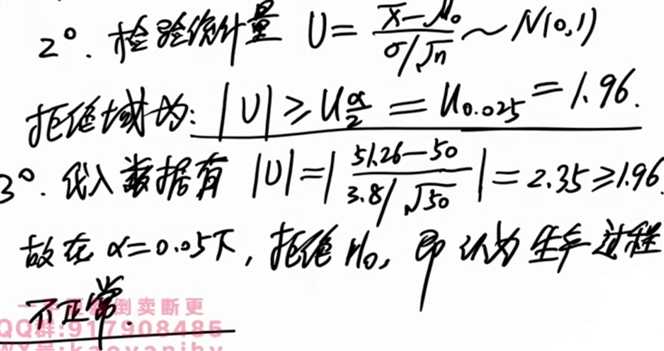 2°. 检验统计量 U = (X̄-μ₀)/(σ/√n) ~ N(0,1)
拒绝域为: |U| ≥ U_{α/2} = U_{0.025} = 1.96.
3°. 代入数据有 |U| = |(51.26-50)/(3.8/√50)| = 2.35 ≥ 1.96.
故在 α=0.05下, 拒绝H₀, 即认为生产过程
不正常.
倒卖断更
QQ群:917908485